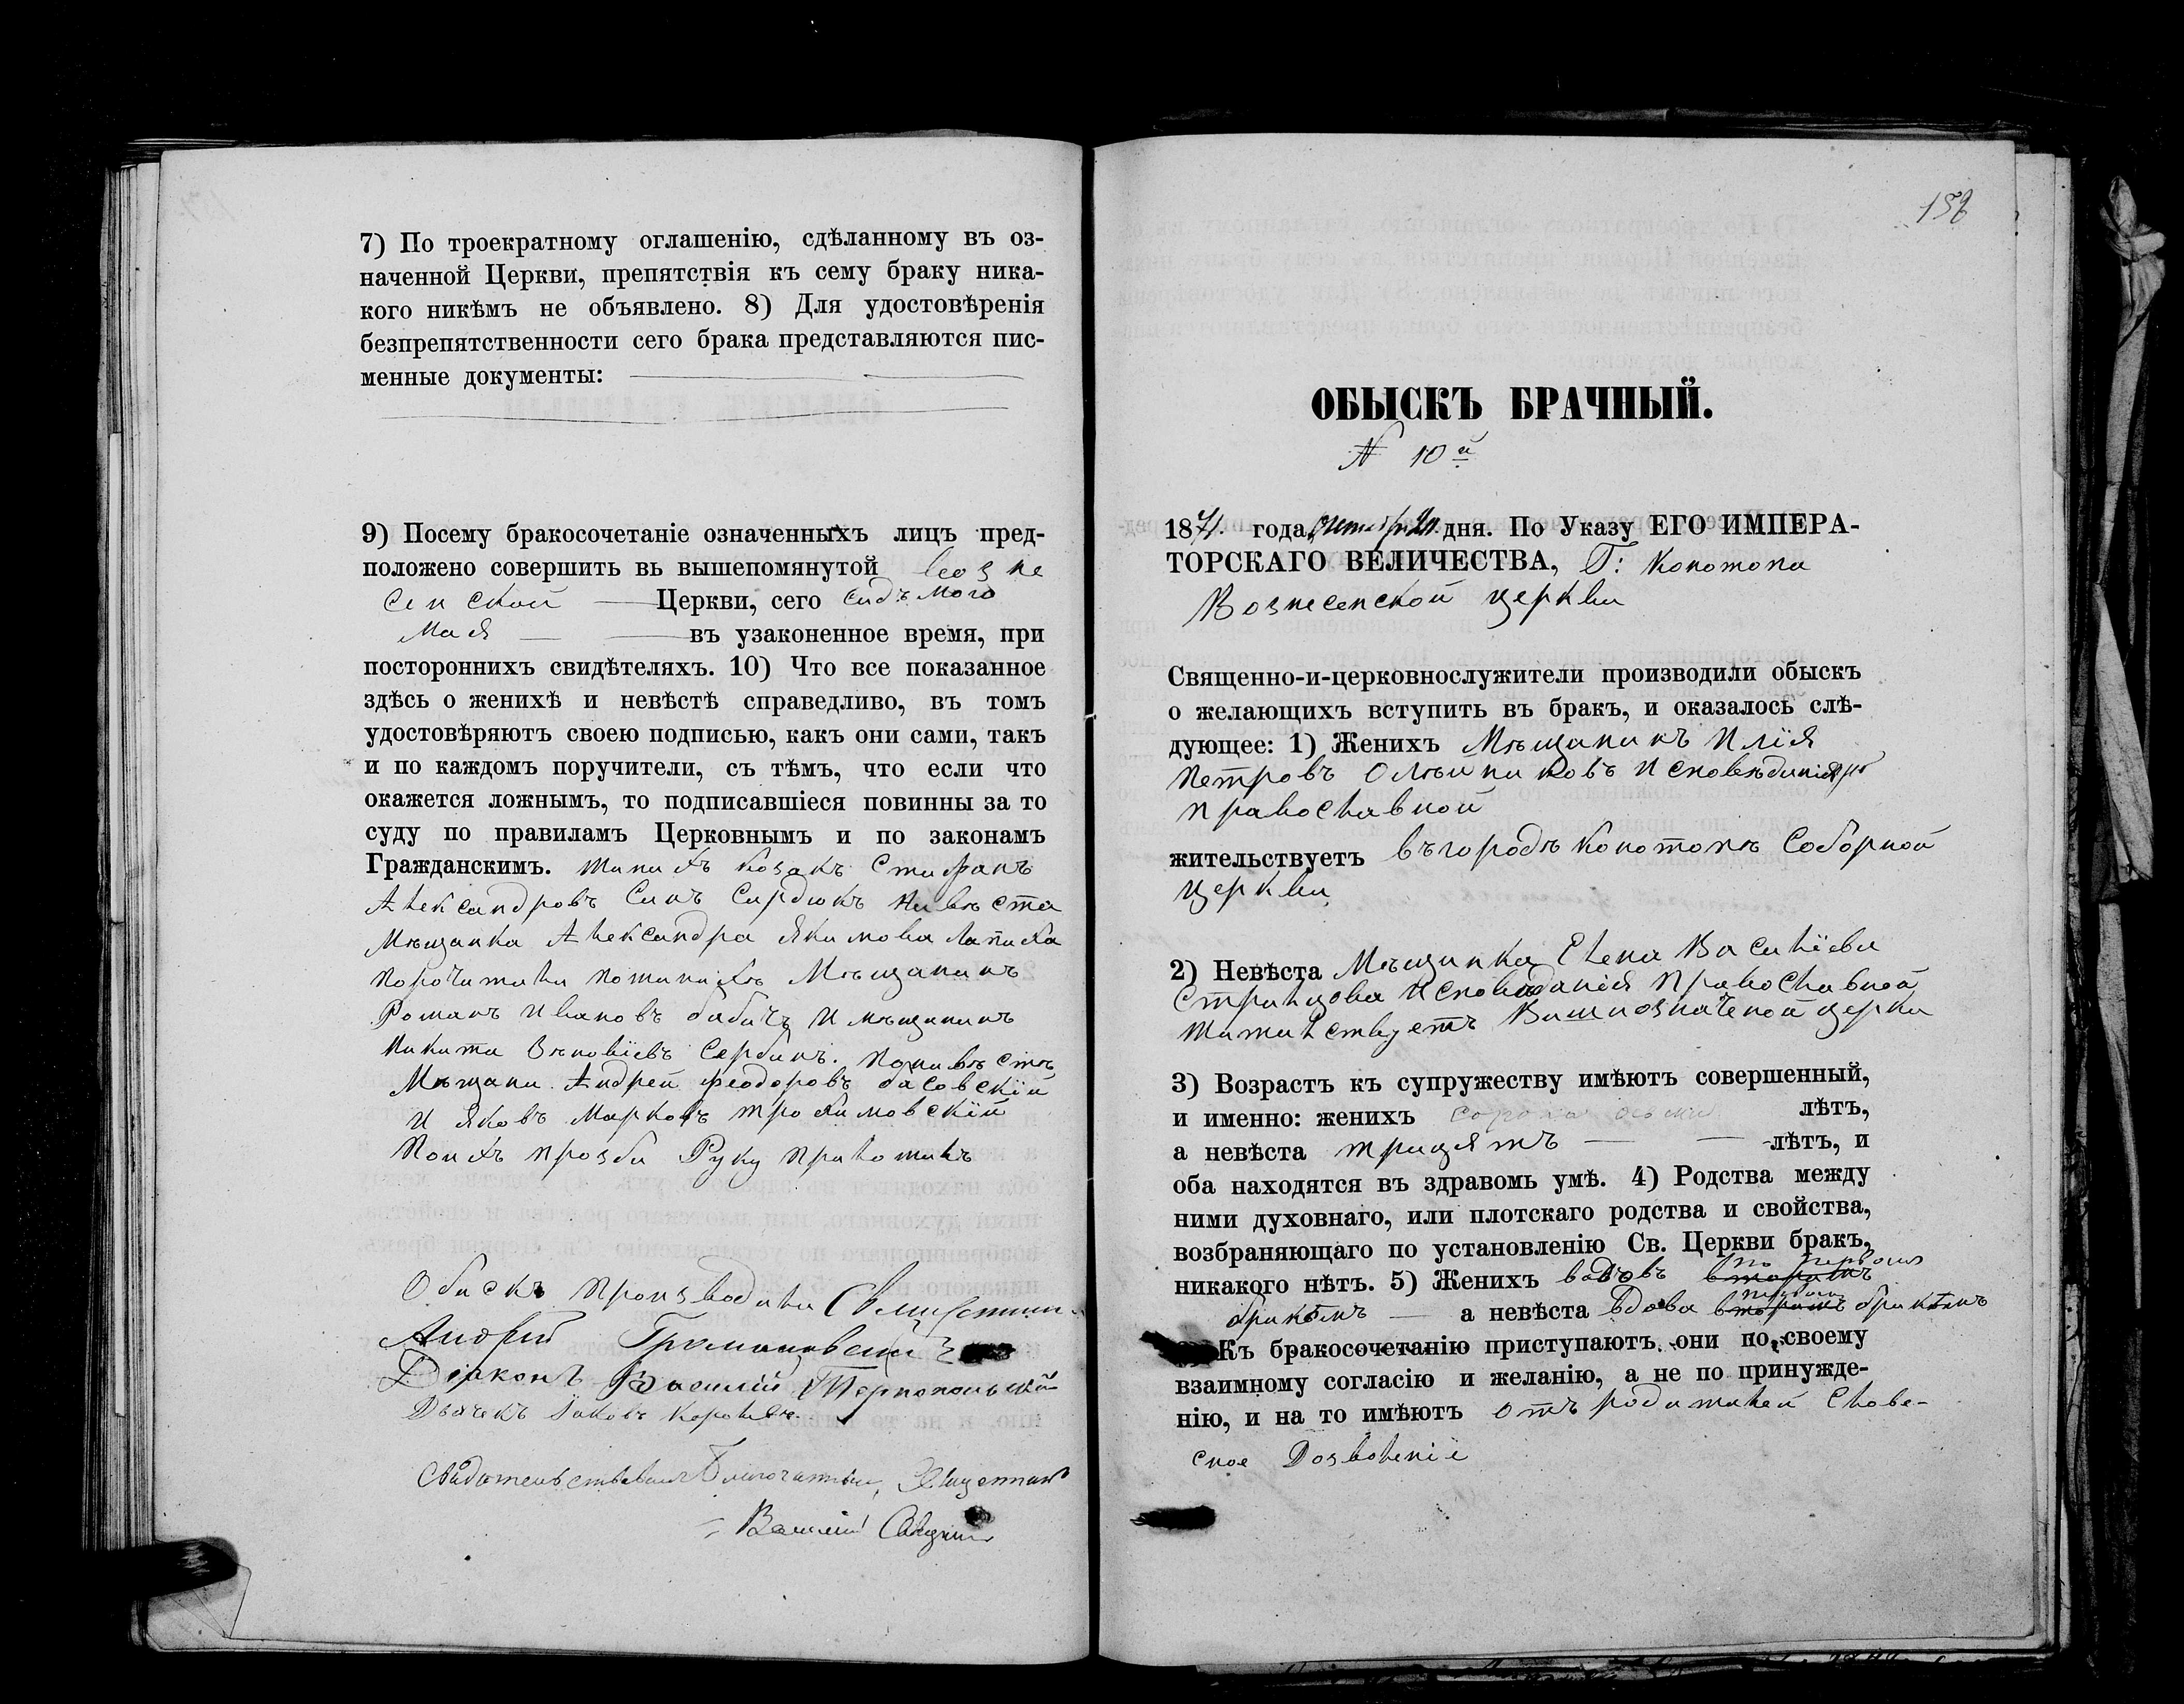 7) По троекратному оглашенію, сдѣланному въ оз-
наченной Церкви, препятствія къ сему браку ника-
кого никѣмъ не объявлено. 8) Для удостовѣренія
безпрепятственности сего брака представляются пис-
менные документы:
9) Посему бракосочетаніе означенныхъ лицъ пред-
положено совершить вь вышепомянутой Возне
сенской Церкви, сего сидъмого
Мая въ узаконенное время, при
постороннихъ свидѣтеляхъ. 10) Что все показанное
здѣсь о женихѣ и невѣстѣ справедливо, въ томъ
удостовѣряютъ своею подписью, какъ они сами, такъ
и по каждомъ поручители, съ тѣмъ, что если что
окажется ложнымъ, то подписавшіеся повинны за то
суду по правиламъ Церковнымъ и по законамъ
Гражданскимъ. жинихъ козакъ Стифанъ
Александровъ Синъ Сирдюкъ Нивѣста
Мѣщанка Александра Якимова
порочитили пожинихѣ Мѣщанинъ
Романъ Ивановъ бабичъ И мѣщанинъ
Никита Сербинъ. Понивѣстѣ
Мѣщани. Андрей Феодоровъ басовскій
И Яковъ Марковъ трохимовскій
Поихъ прозби Руку приложилъ
Обискъ производили Священник
Андрей Громаковскій
Діаконъ Василій Тернопольскій
Дьячекъ Іаковъ Королевъ
Василій
158
ОБЫСКЪ БРАЧНЫЙ.
N 10й
1871. года дня. По Указу ЕГО ИМПЕРА-
ТОРСКАГО ВЕЛИЧЕСТВА, Г: Конотопа
Вознесенской церкви
Священно-и-церковнослужители производили обыскъ
о желающихъ вступить въ бракъ, и оказалось слѣ-
дующее: 1) Женихъ Мѣщанинъ Илія
Петровъ Олѣйниковъ Исповѣданія
православной
жительствуетъ въгородѣ Конотопѣ Соборной
церкви
2) Невѣста Мѣщанка Елена Василіева
Стрильцова Исповѣданія Православной
жителствуетъ Вишиозначеной церки
3) Возрастъ къ супружеству имѣютъ совершенный,
и именно: женихъ сорока лѣтъ,
а невѣста трицятъ лѣтъ, и
оба находятся въ здравомь умѣ. 4) Родства между
ними духовнаго, или плотскаго родства и свойства,
возбраняющаго по установленію Св. Церкви бракъ,
никакого нѣтъ. 5) Женихъ вдовъ по первомъ
бракѣмъ а невѣста вдова бракѣмъ
Къ бракосочетанію приступаютъ они по своему
взаимному согласію и желанію, а не по принужде-
нію, и на то имѣютъ отъ родителей Слове-
сное Дозволеніе